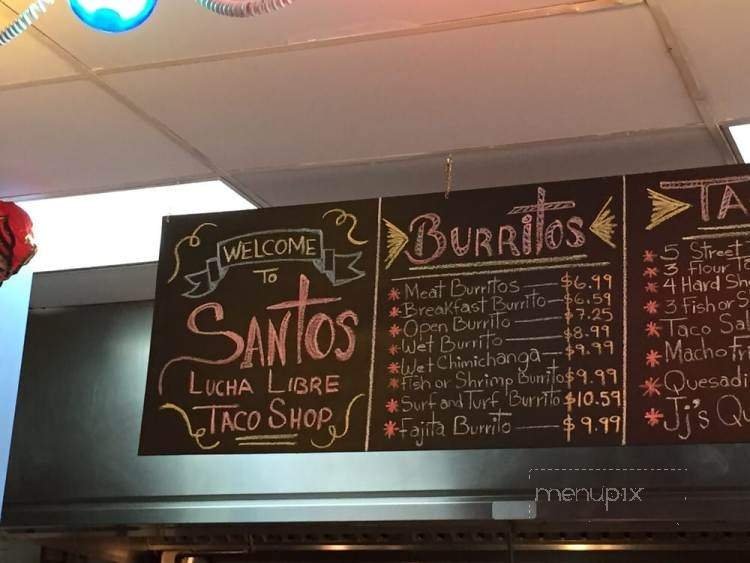 WELCOME
TO
SANTOS
LUCHA LIBRE
TACO SHOP
BURRITOS
* Meat Burritos — $6.99
* Breakfast Burrito — $6.59
* Open Burrito — $7.25
* Wet Burrito — $8.99
* Wet Chimichanga — $9.99
* Fish or Shrimp Burrito $9.99
* Surf and Turf Burrito $10.59
* Fajita Burrito — $9.99
TA
* 5 Street
* 3 flour
* 4 Hard
* 3 Fish or
* Taco
* Macho
* Quesadi
* Jj's
menupix